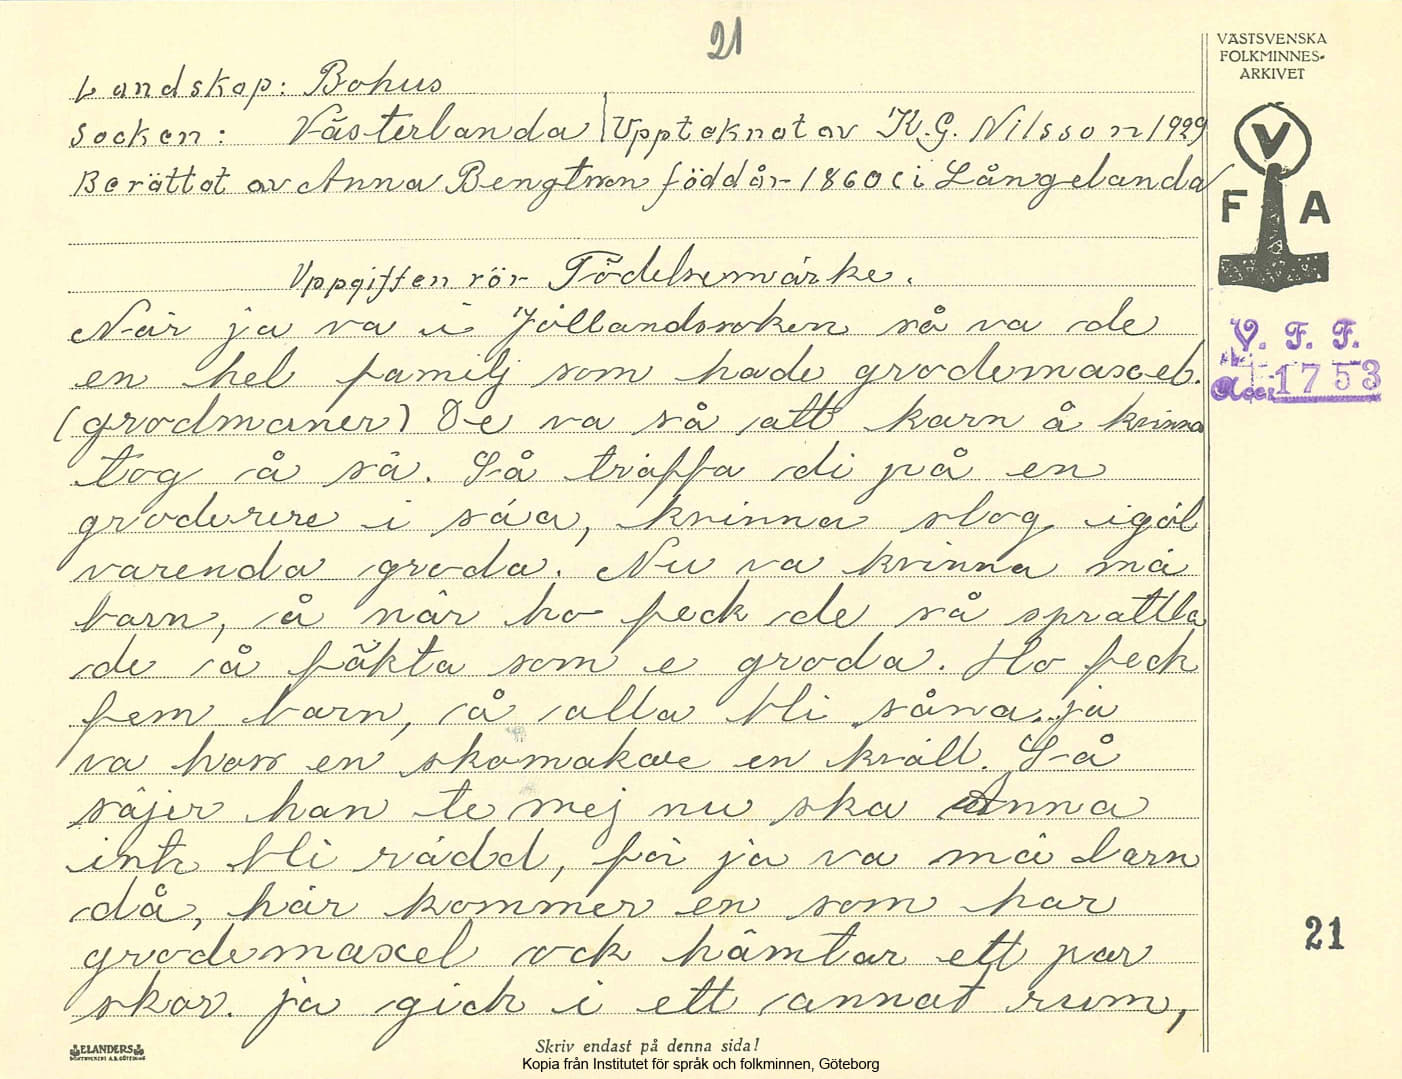 21
VÄSTSVENSKA
FOLKMINNES-
ARKIVET
Landskap: Bohus
Socken: Västerlanda Upptaknat av K.G. Nilsson 1929
Berättat av Anna Bengtson född år 1860 i Långelanda
V
F A
Uppgiften rör Födelsemärke.
När ja va i Jöllandssoken så va de
V. F. F.
en hel familj som hade grodemaxel.
Acc. 1753
(grodmaner) De va så att karn å kvinna
tog å så. Så träffa di på en
groderere i såa, kvinna slog igäl
varenda groda. Nu va kvinna mä
barn, å när ho feck de så sprattla
de å fäkta som e groda. Ho feck
fem barn, å alla bli såna. ja
va hoss en skomakare en kväll. Så
säjer han te mej nu ska Anna
inte bli rädd, för ja va mä barn
då, här kommer en som har
grodemaxel ock hämtar ett par
21
skor. ja gick i ett annat rum,
ELANDERS
Skriv endast på denna sida!
Kopia från Institutet för språk och folkminnen, Göteborg